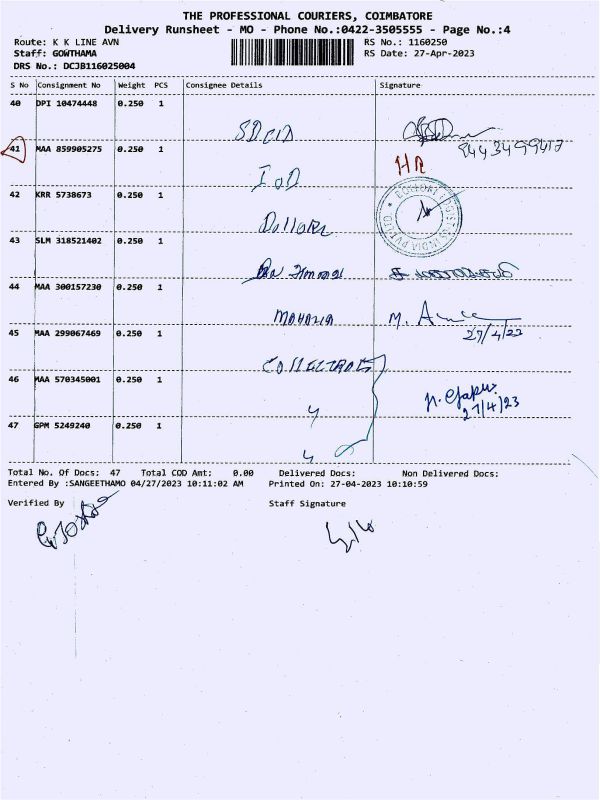 THE PROFESSIONAL COURIERS, COIMBATORE
Delivery Runsheet - MO - Phone No.:0422-3505555 - Page No.:4
Route: K K LINE AVN RS No.: 1160250
Staff: GOWTHAMA RS Date: 27-Apr-2023
DRS No.: DCJB116025004
S No Consignment No Weight PCS Consignee Details Signature
40 DPI 10474448 0.250 1
41 MAA 859905275 0.250 1
HR
42 KRR 5738673 0.250 1 Dollar
43 SLM 318521402 0.250 1
44 MAA 300157230 0.250 1 M.
27/4/23
45 MAA 299067469 0.250 1
46 MAA 570345001 0.250 1
27/4/23
47 GPM 5249240 0.250 1
Total No. Of Docs: 47 Total COD Amt: 0.00 Delivered Docs: Non Delivered Docs:
Entered By :SANGEETHAMO 04/27/2023 10:11:02 AM Printed On: 27-04-2023 10:10:59
Verified By Staff Signature